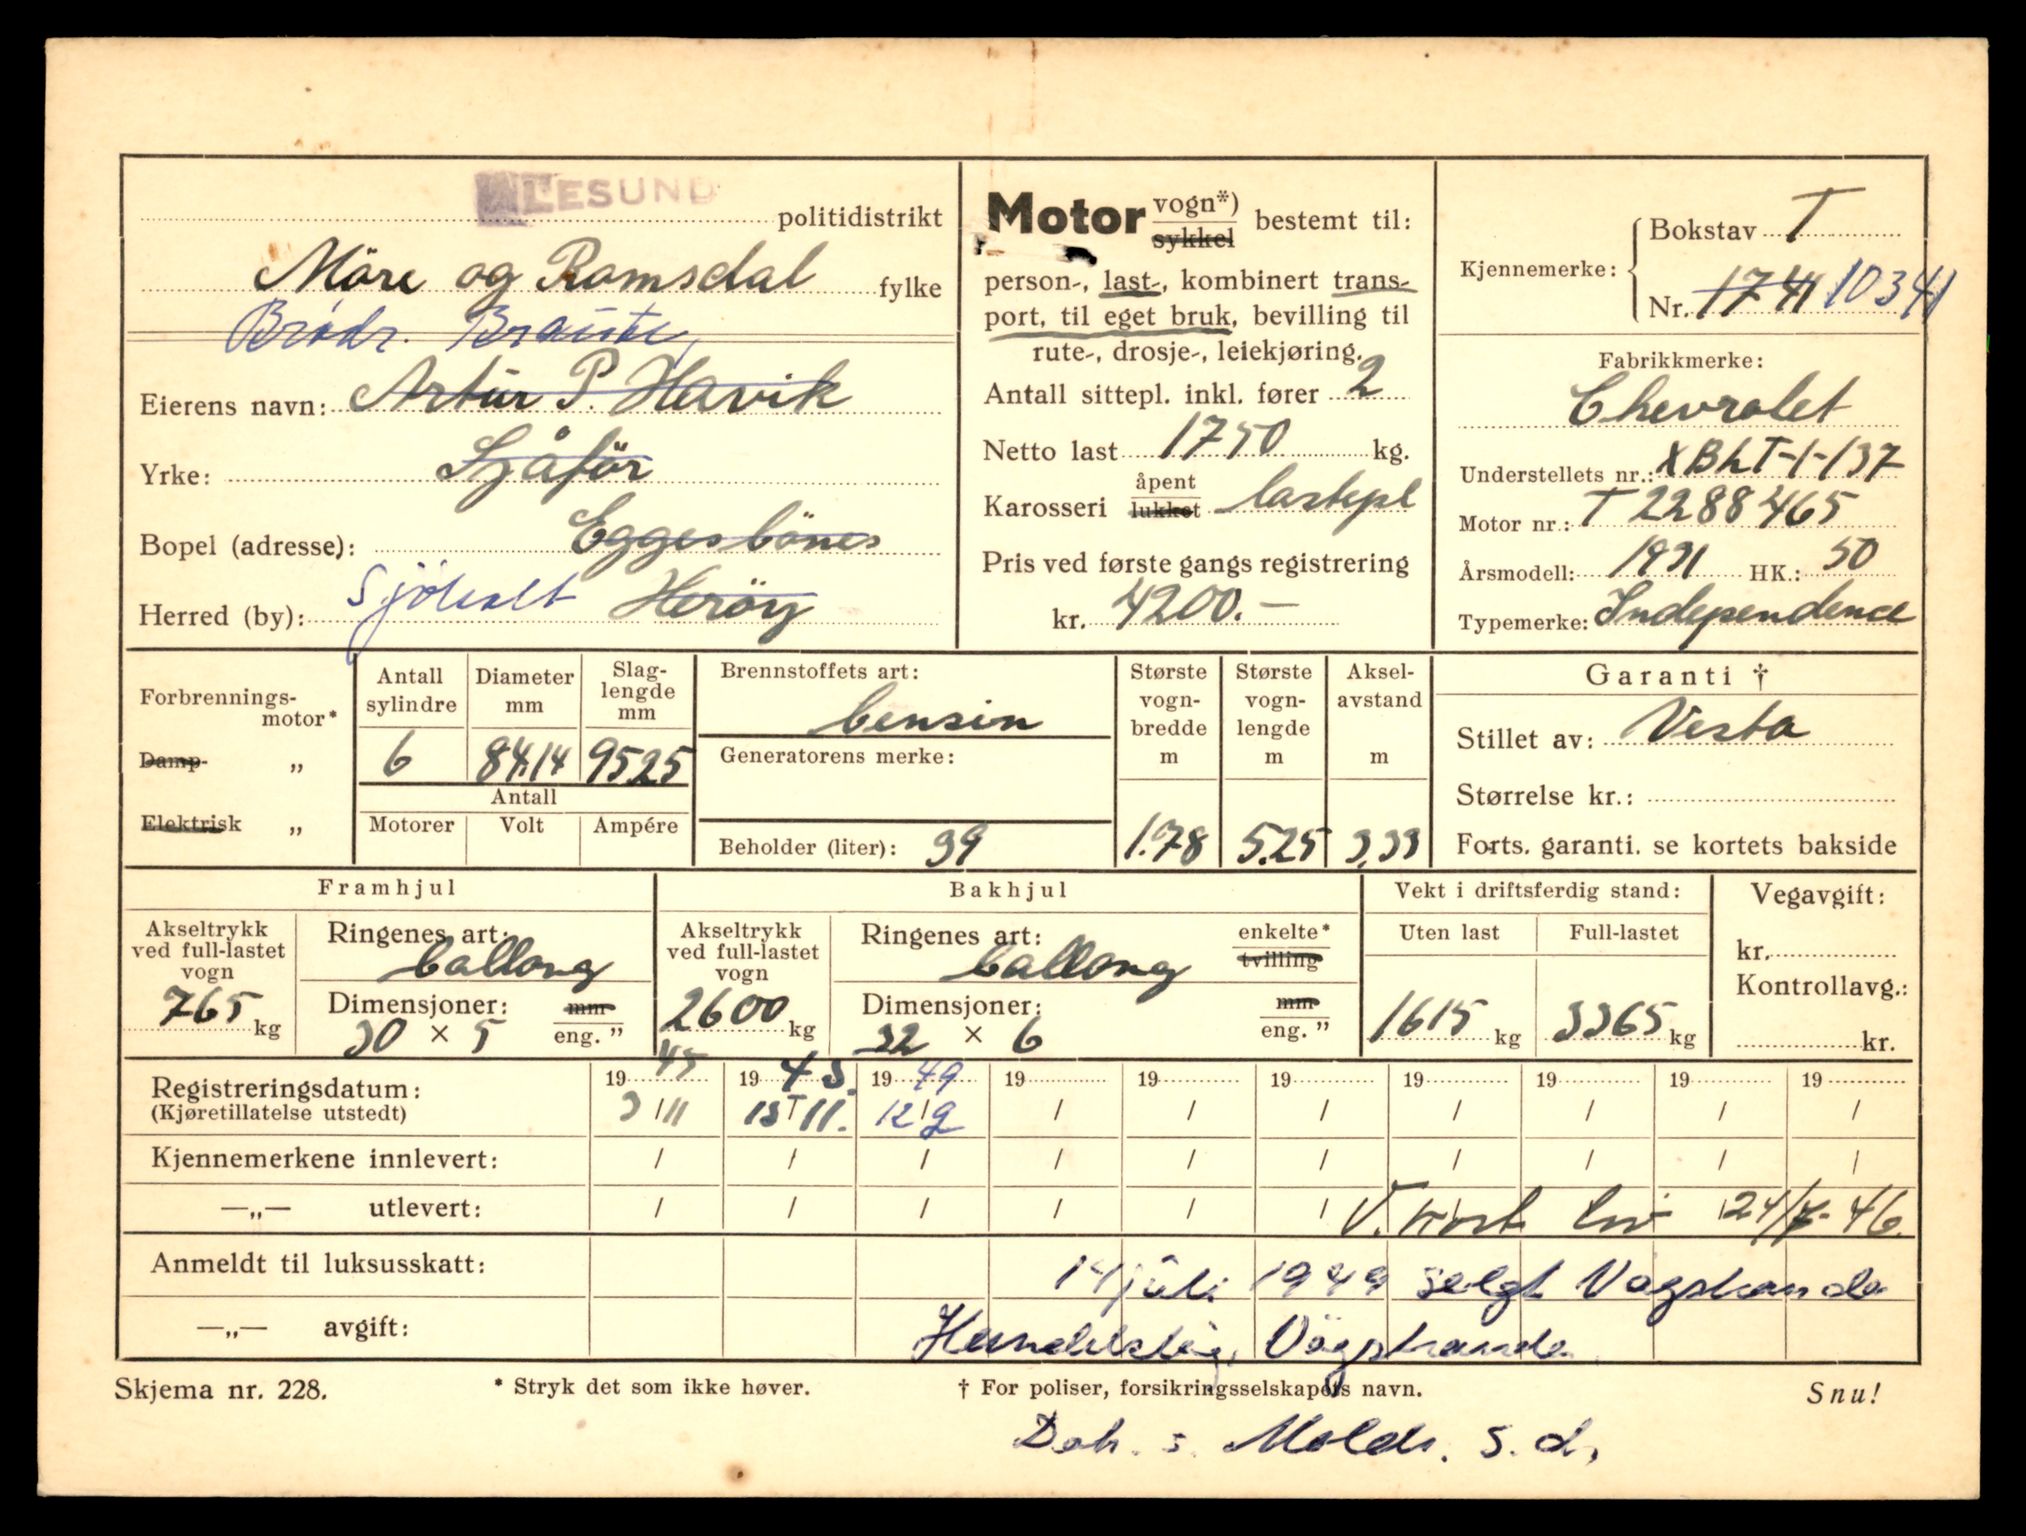 ÅLESUND politidistrikt
Möre og Romsdal fylke
Brødr. Brauste,
Eierens navn: Artur P. Havik
Yrke: Sjåför
Bopel (adresse): Eggesbönes
Herred (by): Sjöholt Heröy
Motor vogn*) sykkel bestemt til:
person-, last-, kombinert trans-
port, til eget bruk, bevilling til
rute-, drosje-, leiekjøring.
Antall sittepl. inkl. fører 2
Netto last 1750 kg.
Karosseri åpent lukket lastepl
Pris ved første gangs registrering
kr. 4200.—
Kjennemerke: Bokstav T
Nr. 1741 10341
Fabrikkmerke:
Chevrolet
Understellets nr.: XBLT-1-137
Motor nr.: T 2288465
Årsmodell: 1931 HK.: 50
Typemerke: Independence
Forbrennings-
motor*
Damp- „
Elektrisk „
Antall sylindre Diameter mm Slag-lengde mm
6 84.14 95.25
Antall
Motorer Volt Ampére
Brennstoffets art:
bensin
Generatorens merke:
Beholder (liter): 39
Største vogn-bredde m
1.78
Største vogn-lengde m
5.25
Aksel-avstand m
3,33
Garanti †
Stillet av: Vesta
Størrelse kr.:
Forts. garanti. se kortets bakside
Framhjul
Akseltrykk ved full-lastet vogn
765 kg
Ringenes art:
ballong
Dimensjoner: mm
30 × 5 eng. "
Bakhjul
Akseltrykk ved full-lastet vogn
2600 kg
Ringenes art: enkelte*
ballong tvilling
Dimensjoner: mm
32 × 6 eng. "
Vekt i driftsferdig stand:
Uten last Full-lastet
1615 kg 3365 kg
Vegavgift:
kr.
Kontrollavg.:
kr.
Registreringsdatum: 19 45 19 48. 19 49 19 19 19 19 19 19 19
(Kjøretillatelse utstedt) 3/11 13/11. 12/9 / / / / / / /
Kjennemerkene innlevert: / / / / / / / / / /
—„— utlevert: / / / / / / 24/7-46.
Anmeldt til luksusskatt: 14 juli 1949 selgt Vagstranda
—„— avgift: Handelslag, Vågstranda
Skjema nr. 228. * Stryk det som ikke høver. † For poliser, forsikringsselskapets navn. Snu!
s. Molde. s. d.